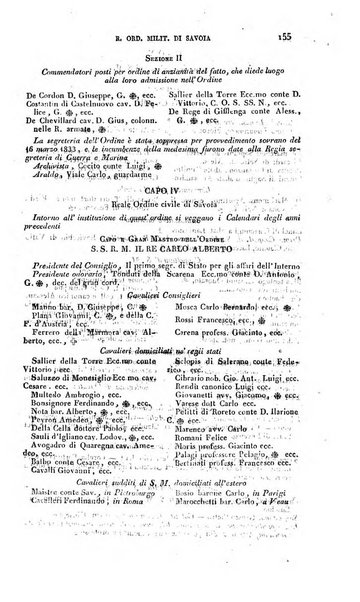 R. ORD. MILIT. DI SAVOIA 155
SEZIONE II
Commendatori posti per ordine di anzianità del fatto, che diede luogo
alla loro admissione nell'Ordine
De Cordon D. Giuseppe, G. ✠ ecc.
Costantin di Castelnuovo cav. D. Fe-
lice, G. ✠, ecc.
De Chevillard cav. D. Gius, colonn.
nelle R. armate, ✠
Sallier della Torre Ecc.mo conte D.
Vittorio, C. O. S. SS. N., ecc.
De Rege di Gifflenga conte Aless.,
G. ✠, ecc.
La segreteria dell'Ordine è stata soppressa per provvedimento sovrano del
16 marzo 1833, e le incumbenze della medesima furono date alla Regia se-
greteria di Guerra e Marina
Archivista, Ciaudo Luigi, ✠
Araldo, Viale Carlo, guardarme
CAPO IV
Reale Ordine civile di Savoia
Intorno all'instituzione di quest'ordine si veggano i Calendari degli anni
precedenti
CAPO E GRAN MASTRO DELL'ORDINE
S. S. R. M. IL RE CARLO ALBERTO
Presidente del Consiglio, Il primo segr. di Stato per gli affari dell'Interno
Presidente onorario, Tonduti della Scarena Ecc.mo conte D. Antonio,
G. ✠, dec. del gran cord.
Cavalieri Consiglieri
Manno bar. D. Giuseppe, C. ✠ ecc.
Plana Giovanni, C. ✠, e della C.
F. d'Austria, ecc.
Ferrero della Marmora cav. Al-
berto, ✠, ecc.
Mosca Carlo Bernardo, ecc.
Rossi Francesco, ecc.
Carena profess. Giacinto, ecc.
Cavalieri domiciliati ne' regii stati
Sallier della Torre Ecc.mo conte
Vittorio, ecc.
Saluzzo di Monesiglio Ecc.mo cav.
Alessandro, ecc.
Multedo Ambrogio, ecc.
Bonsignore Ferdinando, ✠, ecc.
Nota bar. Alberto, ✠, ecc.
Peyron Amedeo, ✠, ecc.
Della Cella dottore Paolo, ecc.
Sauli d'Igliano Lodovico, ecc.
Avogadro di Quaregna cav. Ame-
deo, ✠, ecc.
Balbo conte Cesare, ecc.
Cavalli Giovanni, ecc.
Sclopis di Salerano conte Fede-
rico, ecc.
Cibrario nob. Gio. Ant. Luigi, ecc.
Rendù canonico Luigi, ecc.
Giovanetti avv. Giacomo, ✠, ecc.
Varese dott Carlo
Petitti di Roreto conte D. Ilarione
C. ✠, ecc.
Marenco avv. Carlo
Romani Felice
Maris profess. Giacinto, ecc.
Palagi professore Pelagio, ✠, ecc.
Bertinati profess. Francesco ecc.
Cavalieri sudditi di S. M. domiciliati all'estero
Maistre conte Sav., in Pietroburgo
Cavalleri Ferdinando, in Roma
Bosio barone Carlo, in Parigi
Marochetti bar. Carlo, a Vaux